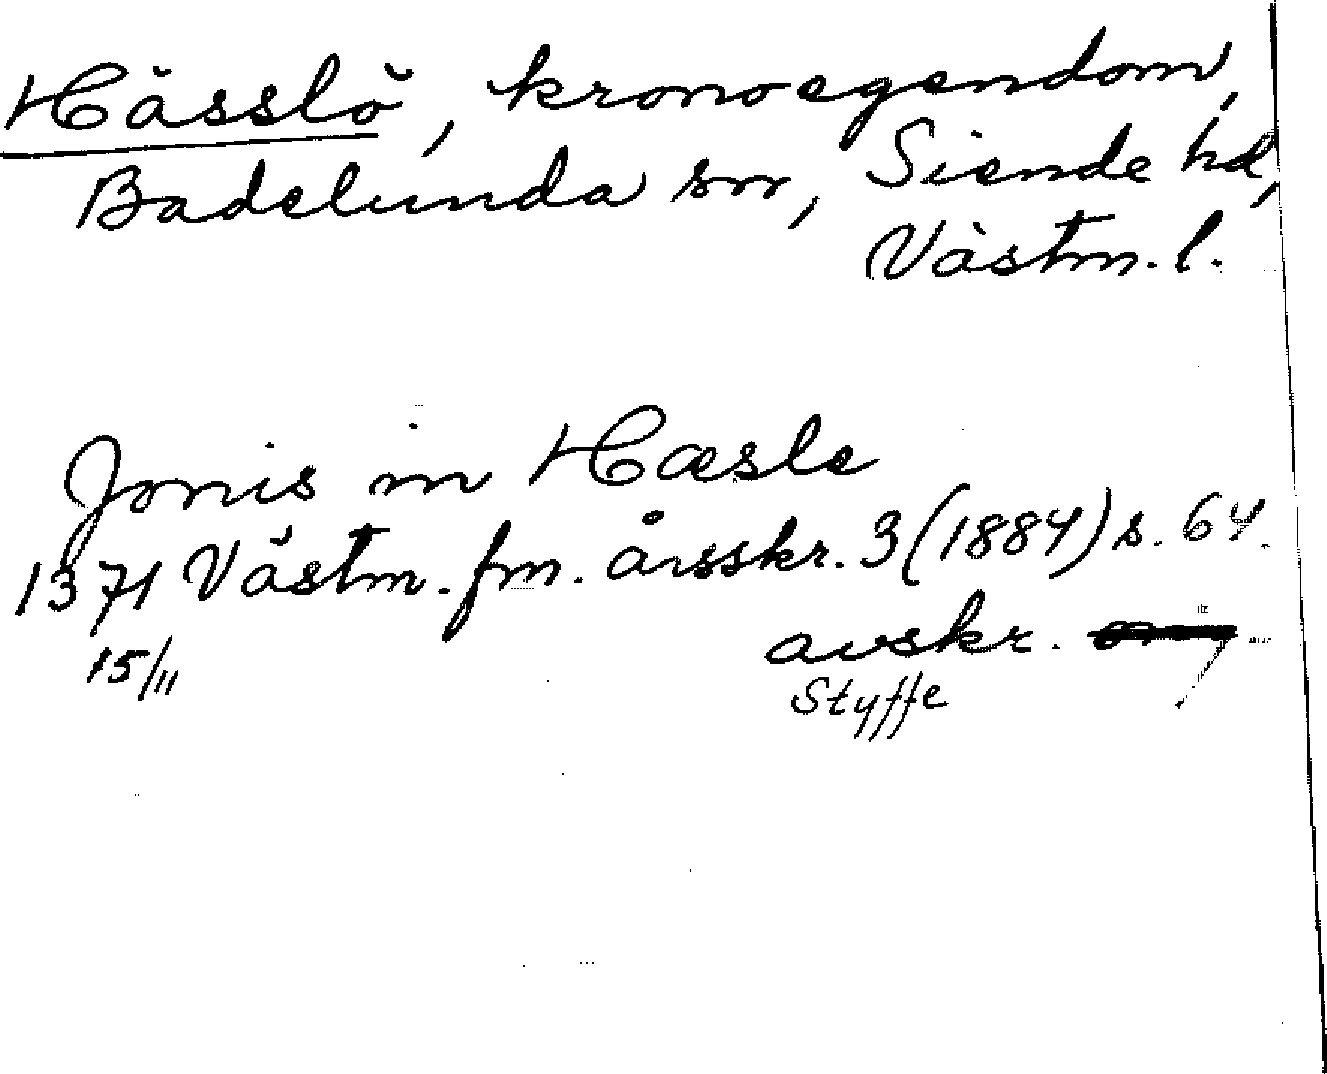 Hässlö, kronoegendom,
Badelunda sn, Siende hd,
Västm. l.
Jonis in Hæsle
1371 Västm. fm. årsskr. 3 (1884) s. 64.
15/11
avskr.
Styffe